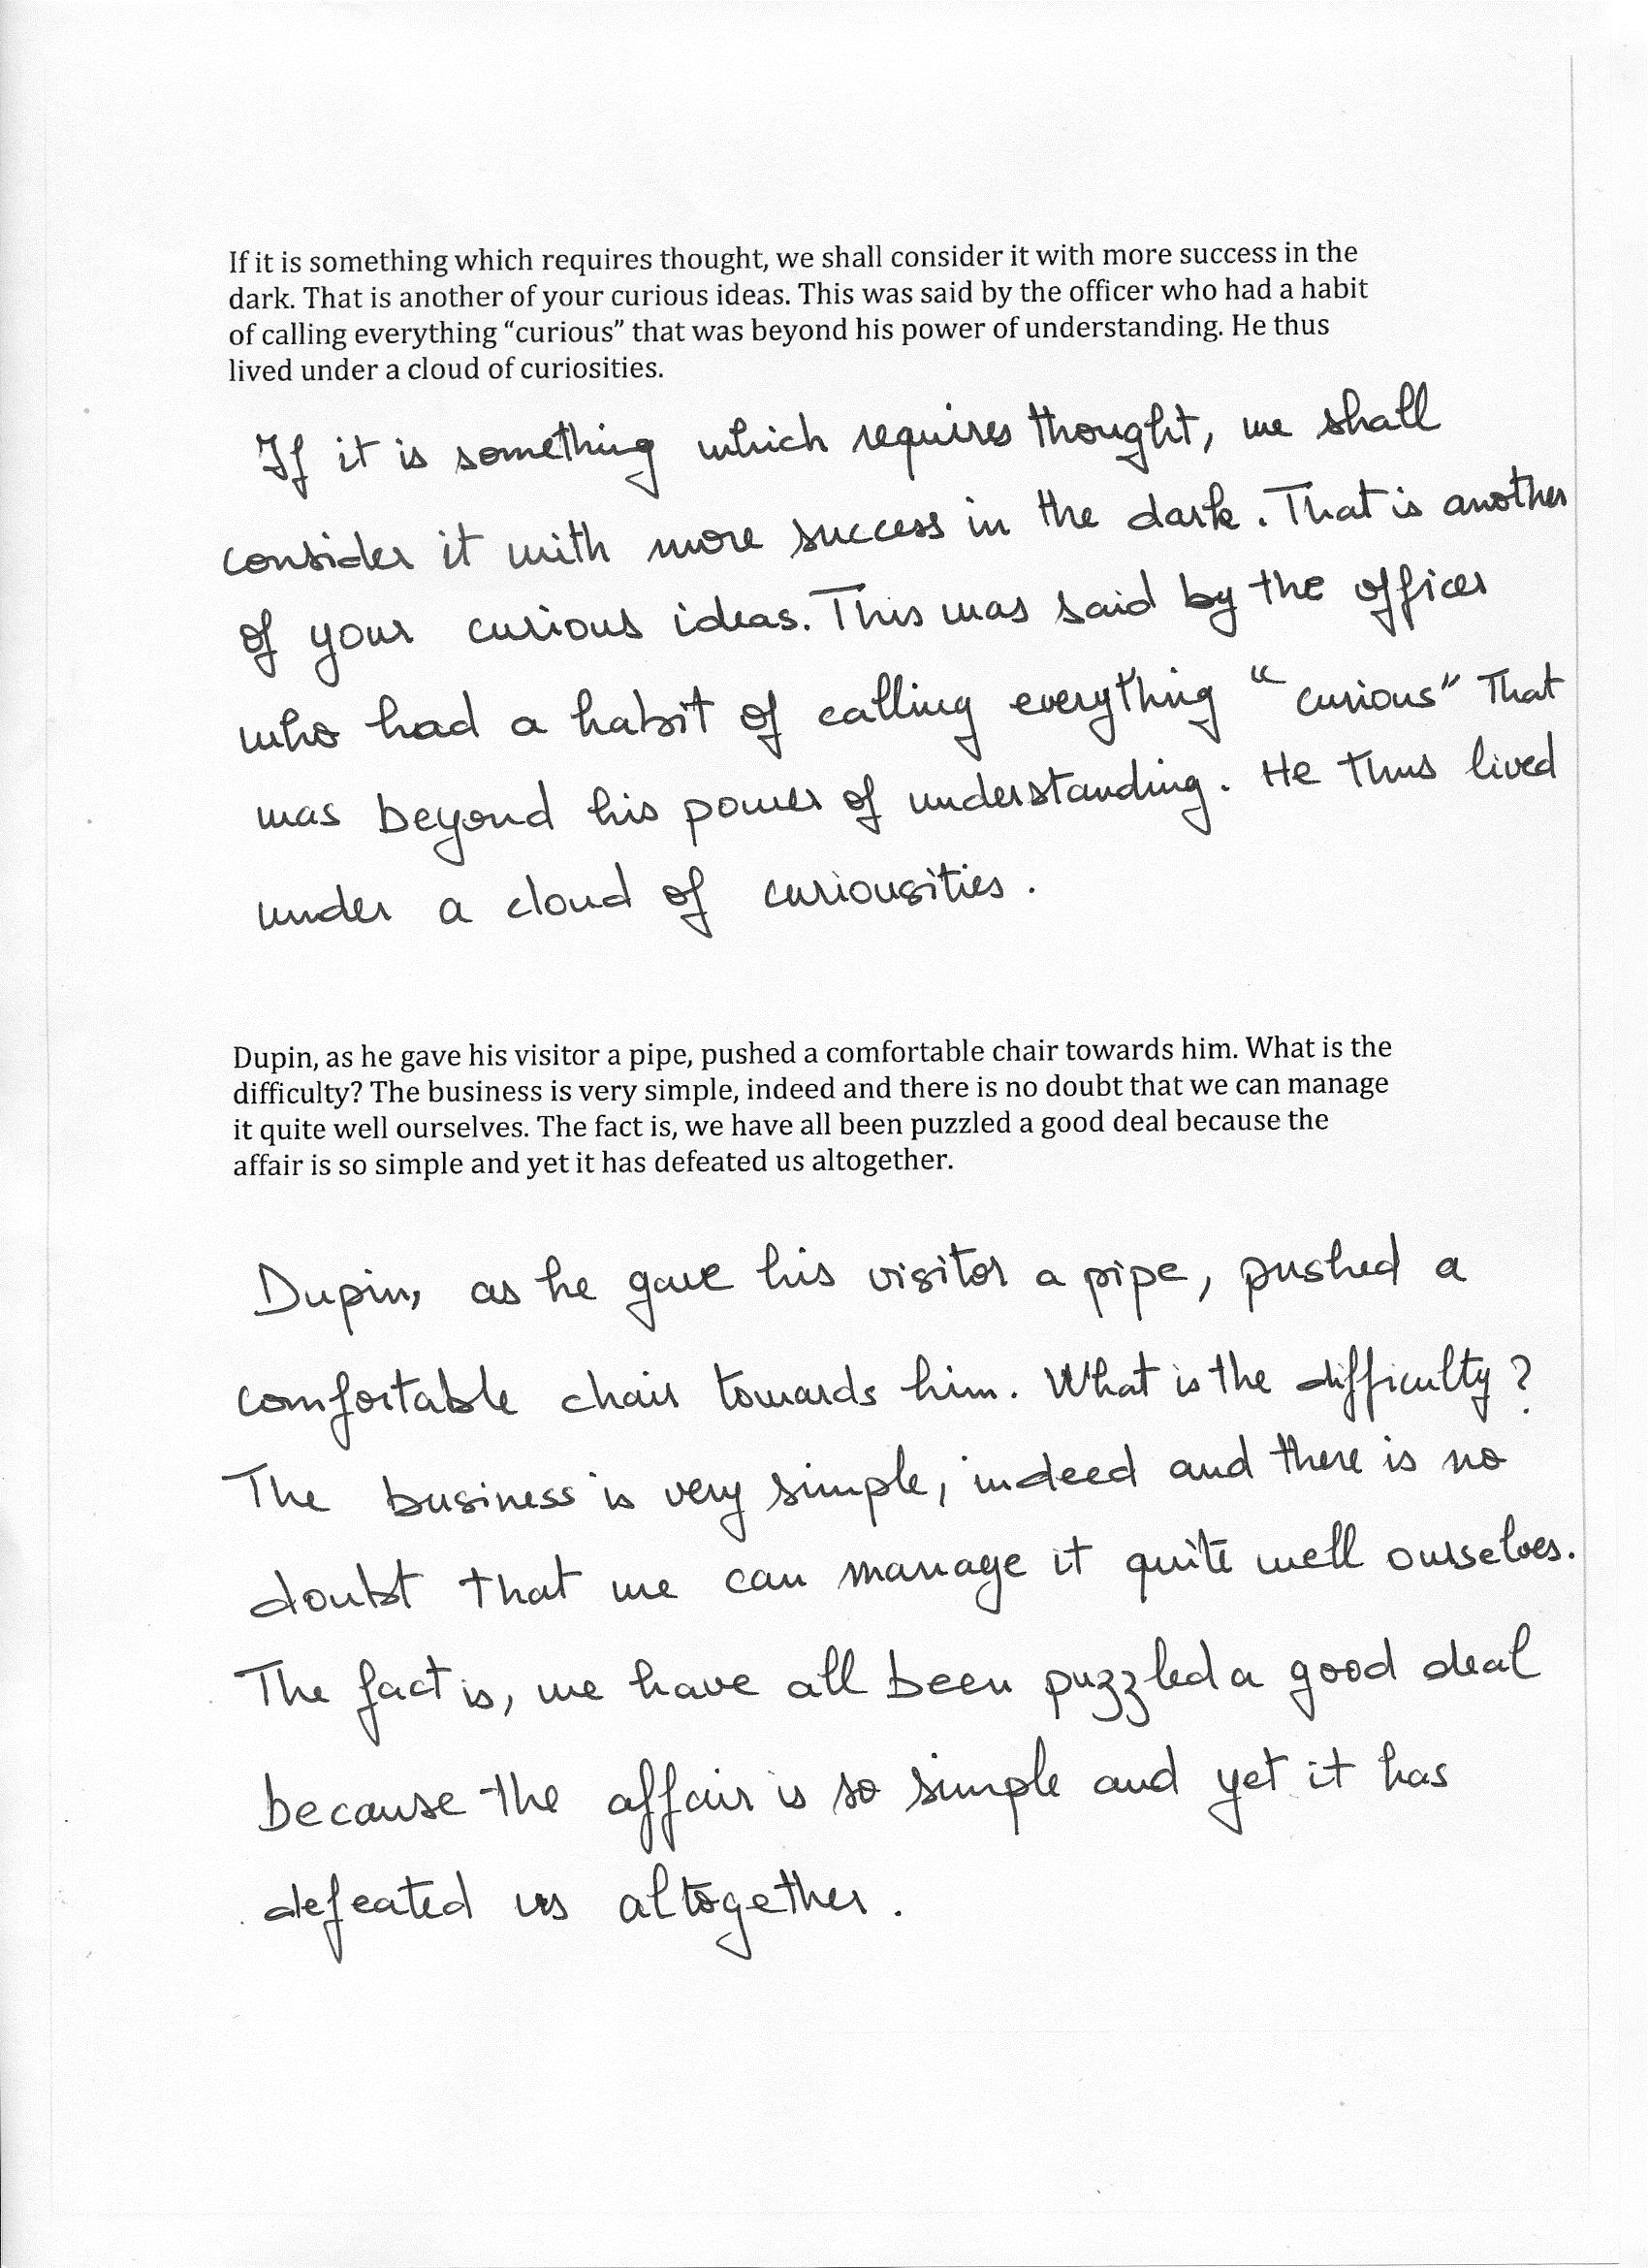 If it is something which requires thought, we shall consider it with more success in the
dark. That is another of your curious ideas. This was said by the officer who had a habit
of calling everything “curious” that was beyond his power of understanding. He thus
lived under a cloud of curiosities.
If it is something which requires thought, we shall
consider it with more success in the dark. That is another
of your curious ideas. This was said by the officer
who had a habit of calling everything “curious” that
was beyond his power of understanding. He thus lived
under a cloud of curiousities.
Dupin, as he gave his visitor a pipe, pushed a comfortable chair towards him. What is the
difficulty? The business is very simple, indeed and there is no doubt that we can manage
it quite well ourselves. The fact is, we have all been puzzled a good deal because the
affair is so simple and yet it has defeated us altogether.
Dupin, as he gave his visitor a pipe, pushed a
comfortable chair towards him. What is the difficulty?
The business is very simple, indeed and there is no
doubt that we can manage it quite well ourselves.
The fact is, we have all been puzzled a good deal
because the affair is so simple and yet it has
defeated us altogether.